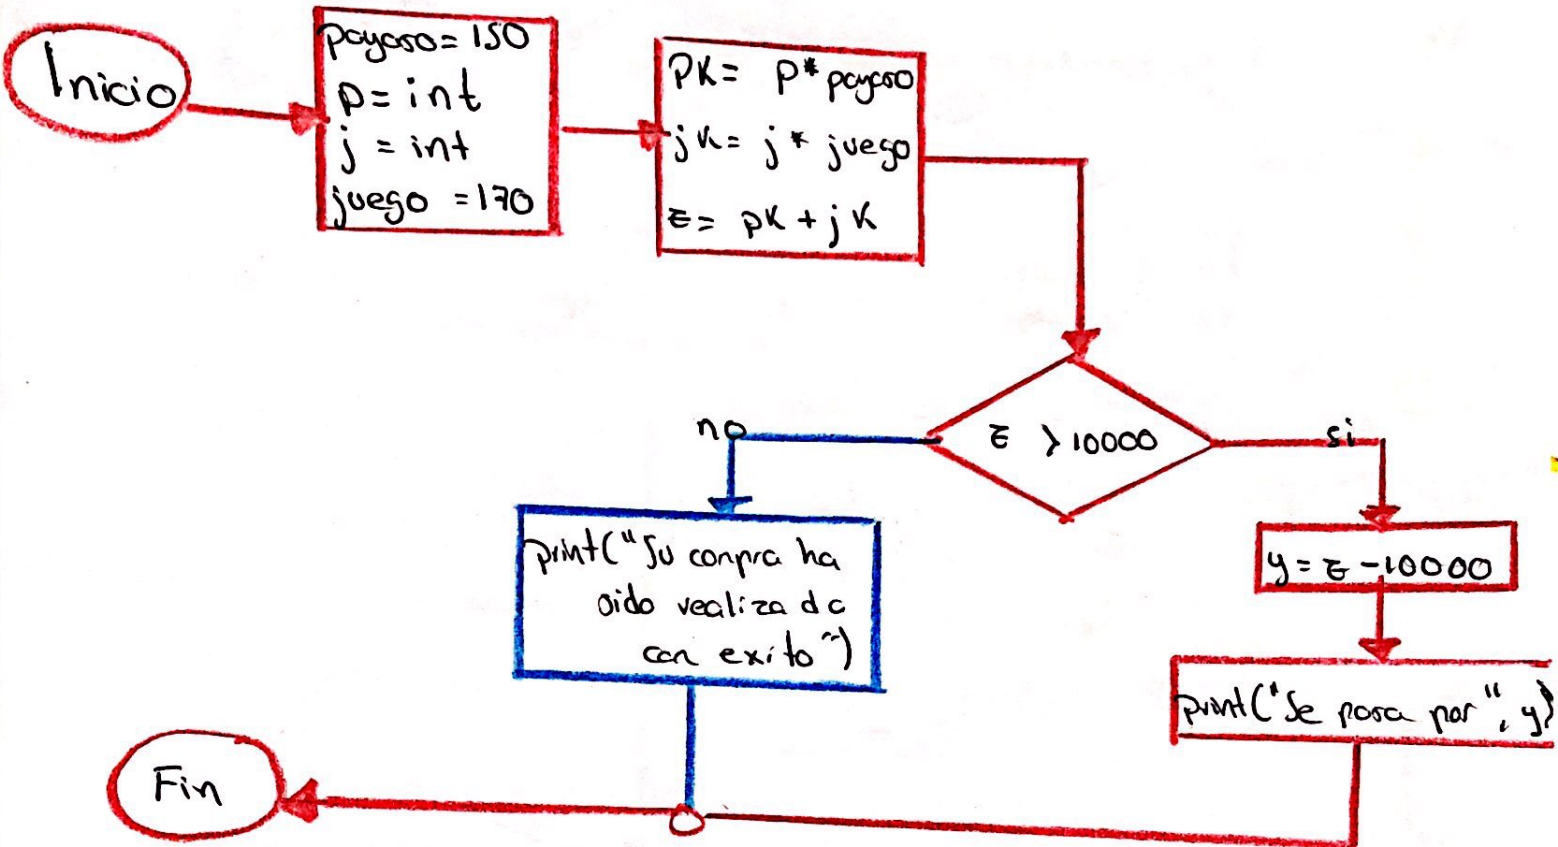 Inicio
payaso = 150
p = int
j = int
juego = 170
pk = p * payaso
jk = j * juego
z = pk + jk
z > 10000
no
si
print("Su conpra ha
sido realizada
con exito")
y = z - 10000
print("Se pasa por", y)
Fin